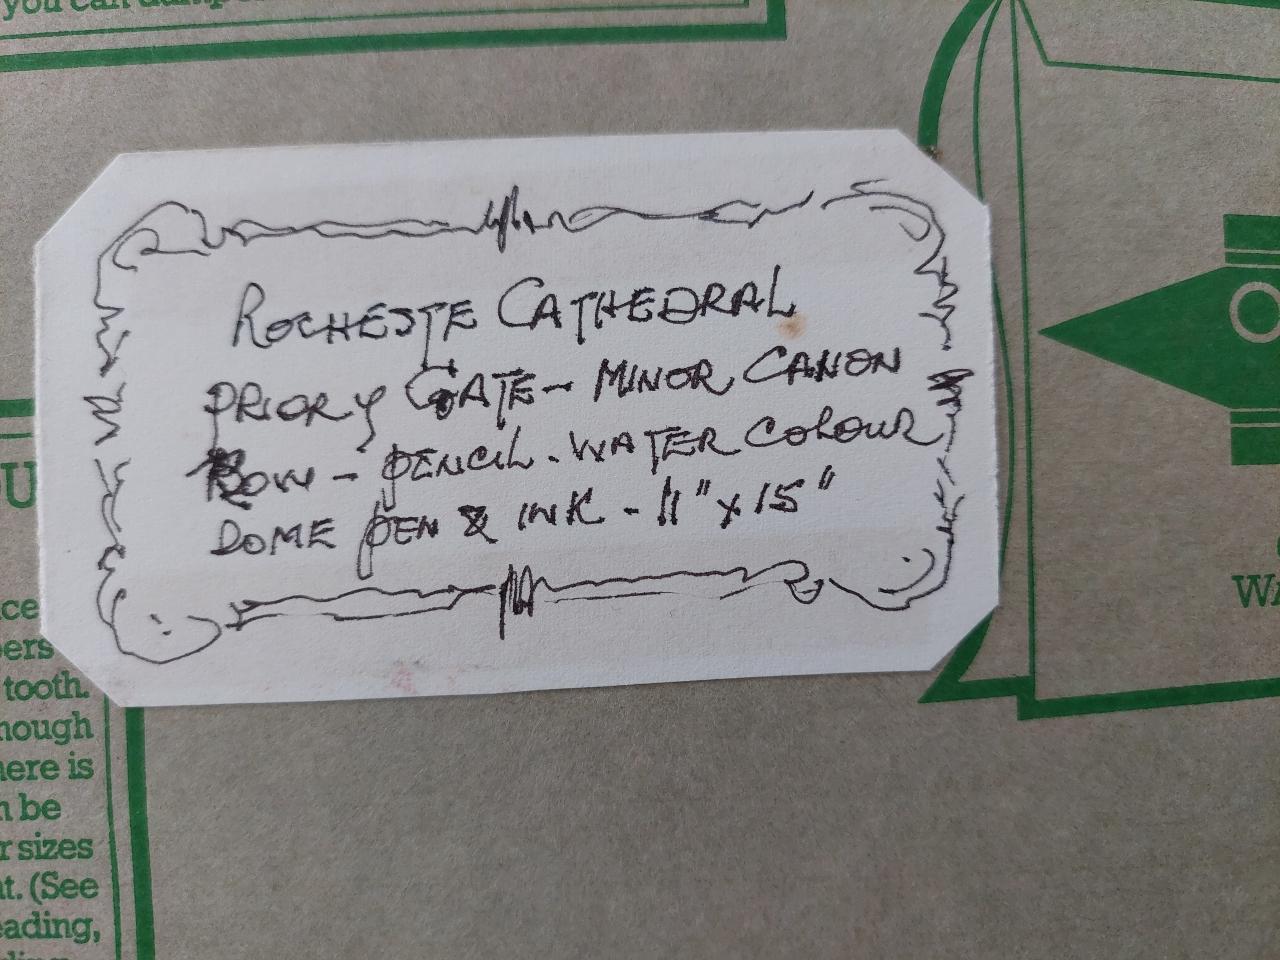 you can
ROCHESTE CATHEDRAL
PRIORY GATE - MINOR CANON
ROW - PENCIL. WATER COLOUR
DOME PEN & INK - 11" x 15"
OU
ers
tooth.
here is
be
r sizes
t. (See
eading,
WA